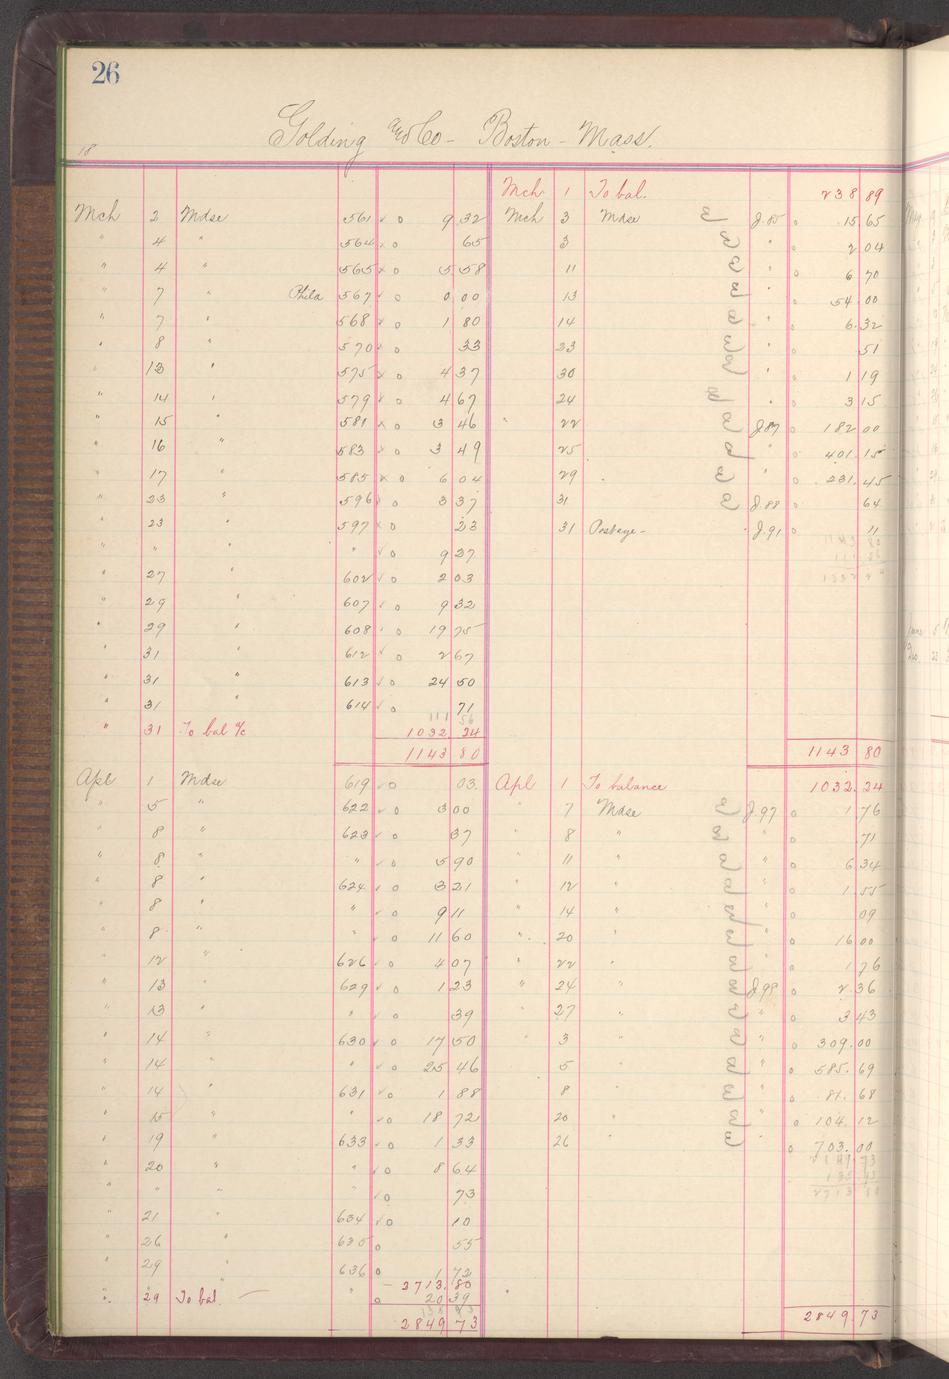 26
Golding and Co - Boston - Mass.
18
Mch 1 To bal. 238 89
Mch 2 Mdse 561 9 32
" 4 " 564 65
" 4 " 565 5 58
" 7 " Phila 567 0 00
" 7 " 568 1 80
" 8 " 570 33
" 13 " 575 4 37
" 14 " 579 4 67
" 15 " 581 3 46
" 16 " 583 3 49
" 17 " 585 6 04
" 23 " 596 3 37
" 23 " 597 23
" " " " 9 37
" 27 " 602 2 03
" 29 " 607 9 32
" 29 " 608 19 75
" 31 " 612 2 67
" 31 " 613 24 50
" 31 " 614 71
111 56
" 31 To bal a/c 1032 24
1143 80
Mch 3 Mdse J.85 15 65
3 " 2 04
11 " 6 70
13 " 54 00
14 " 6.32
23 " 51
30 " 1 19
24 " 3 15
" 22 J.87 182 00
25 " 401.15
29 " 231.45
31 J.88 64
31 Postage - J.91 11
1143 80
Apl 1 Mdse 619 03
" 5 " 622 3 00
" 8 " 623 37
" 8 " " 5 90
" 8 " 624 3 21
" 8 " " 9 11
" 8 " " 11 60
" 12 " 626 4 07
" 13 " 629 1 23
" 13 " " 39
" 14 " 630 17 50
" 14 " " 25 46
" 14 " 631 1 88
" 15 " " 18 72
" 19 " 633 1 33
" 20 " " 8 64
" " " " 73
" 21 " 634 10
" 26 " 635 55
" 29 " 636 1 72
2713.80
" 29 To bal. " 20 39
2849 73
Apl 1 To balance 1032.24
" 7 Mdse J.97 1 76
" 8 " " 71
" 11 " " 6 34
" 12 " " 1 55
" 14 " " 09
" 20 " " 16 00
" 22 " 1 76
" 24 " J.98 2 36
27 " " 3 43
" 3 " " 309.00
5 " " 585.69
8 " " 81.68
20 " " 104.12
26 " 703.00
2849 73